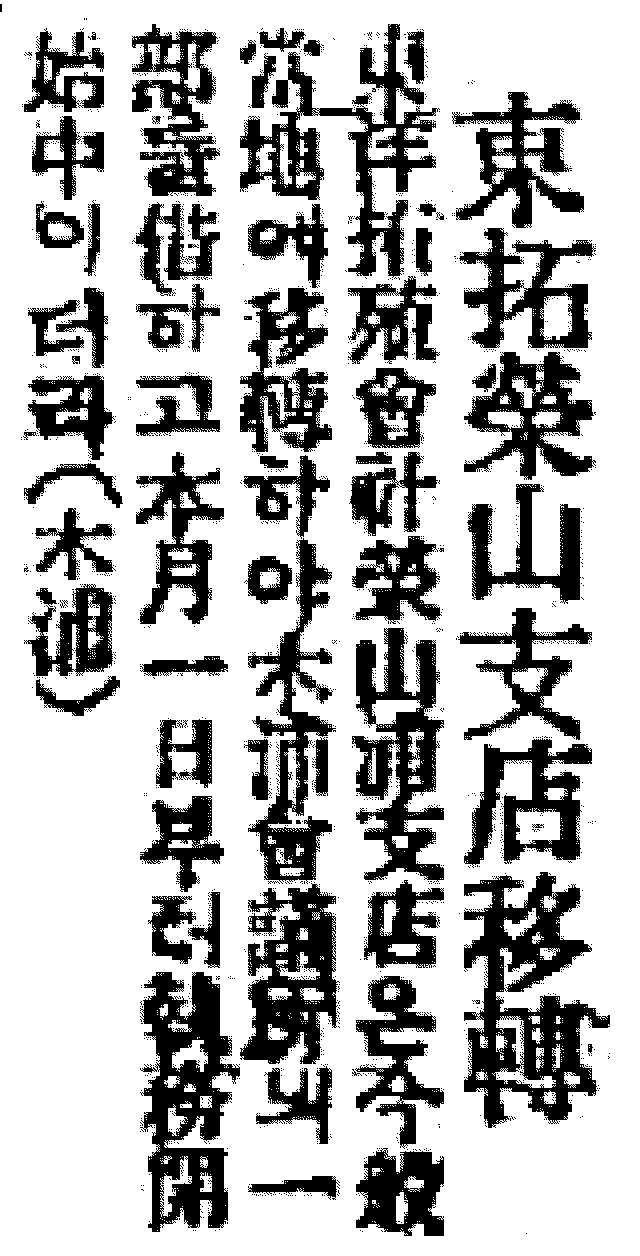 東拓榮山支店移轉
東洋拓殖會社榮山浦支店은今般
當地에移轉하야木浦會議所의一
部를借하고本月一日부터執務開
始中이더라(木浦)